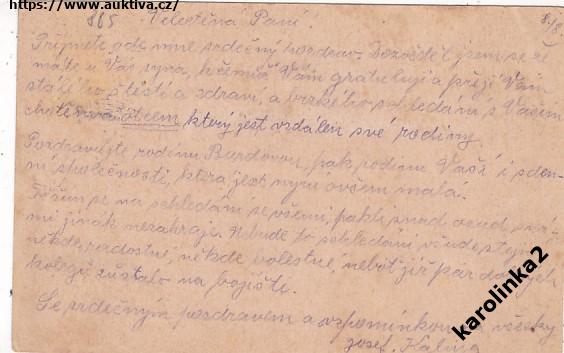 https://www.auktiva.cz/
865 Velectěná Paní! 8/8.
Přijměte ode mne srdečný pozdrav. Dozvěděl jsem se že
máte u Vás syna, k čemuž Vám gratuluji a přeji Vám
stálého štěstí a zdraví, a brzkého shledání s Vaším
který jest vzdálen své rodiny.
Pozdravujte rodinu Burdovou, pak rodinu Vaší i
společnosti, která jest nyní ovšem malá.
Těším se na shledání se všemi, pakli snad osud s
mi jinak nezahraje. Nebude to shledání všude stejné
někde radostné, někde bolestné, neboť již pár
kolegů zůstalo na bojišti.
Se srdečným pozdravem a vzpomínkou na všecky
Josef Kalina
karolinka2